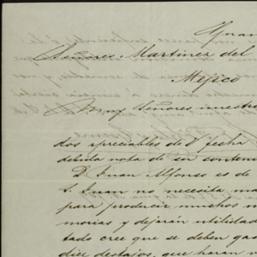 Guan
Señores Martinez del
Mejico
Muy Señores nuestro
dos apreciables de V. fecha
debida nota de su conteni
D. Juan Alfonso es de
S. Juan no necesita ma
para producir muchos m
morias y dejarán utilidad
tado cree que se deben ga
diez destajos, que harán